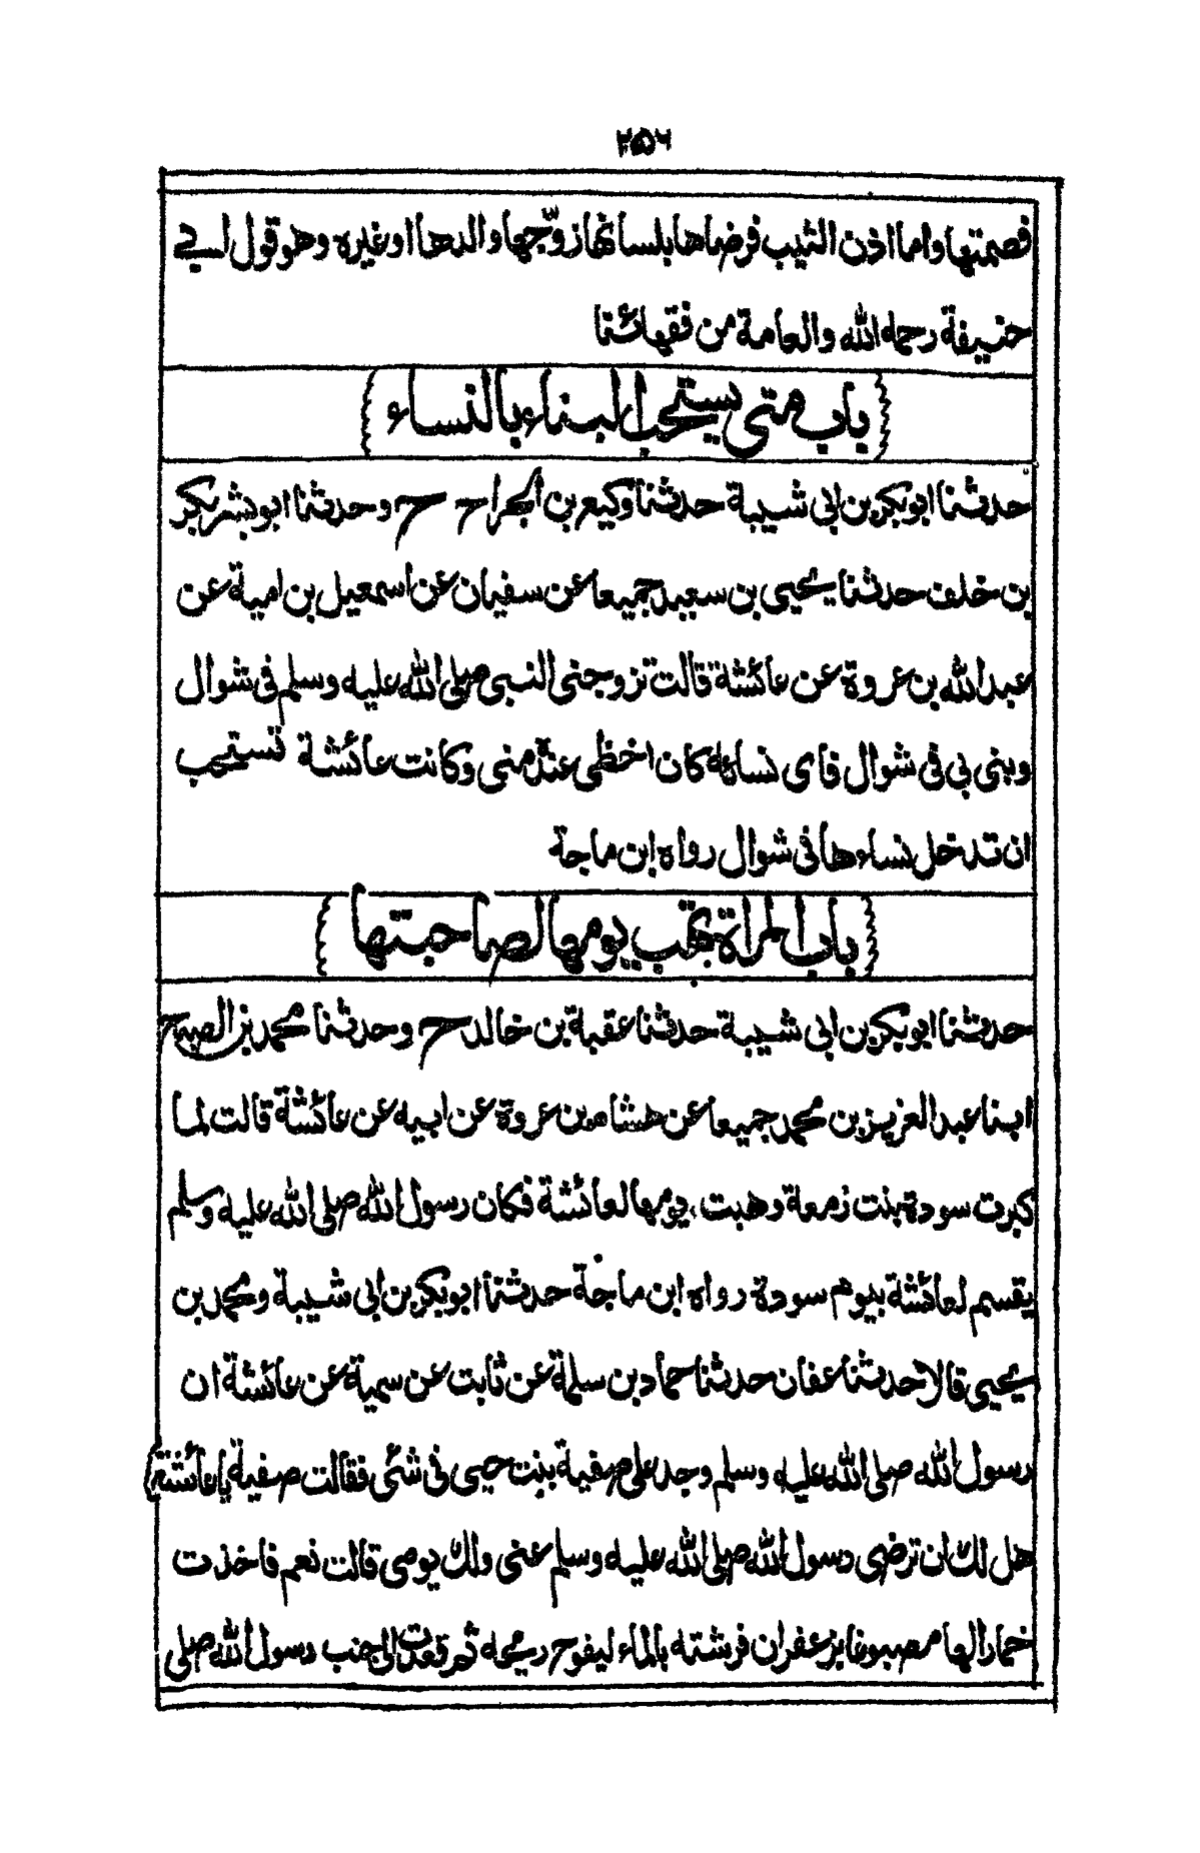 ٢٥٦
فصمتها واما اذن الثيب فرضاها بلسانها زوّجها والدها اوغيره وهو قول ابي
حنيفة رحمه الله والعامة من فقهائنا
{باب متى يستحب البناء بالنساء}
حدثنا ابوبكر بن ابى شيبة حدثنا وكيع بن الجراح ح وحدثنا ابوبشر بكر
بن خلف حدثنا يحيى بن سعيد جميعا عن سفيان عن اسمعيل بن امية عن
عبدالله بن عروة عن عائشة قالت تزوجنى النبى صلى الله عليه وسلم فى شوال
وبنى بى فى شوال فاى نسائه كان احظى عنده منى وكانت عائشة تستحب
ان تدخل نساءها فى شوال رواه ابن ماجة
{باب المرأة تهب يومها لصاحبتها}
حدثنا ابوبكر بن ابى شيبة حدثنا عقبة بن خالد ح وحدثنا محمد بن الصباح
ابنا عبد العزيز بن محمد جميعا عن هشام بن عروة عن ابيه عن عائشة قالت لما
كبرت سودة بنت زمعة وهبت يومها لعائشة فكان رسول الله صلى الله عليه وسلم
يقسم لعائشة بيوم سودة رواه ابن ماجة حدثنا ابوبكر بن ابى شيبة ومحمد بن
يحيى قالا حدثنا عفان حدثنا حماد بن سلمة عن ثابت عن سمية عن عائشة ان
رسول الله صلى الله عليه وسلم وجد على صفية بنت حيى فى شئى فقالت صفية يا عائشة
هل لك ان ترضى رسول الله صلى الله عليه وسلم عنى ولك يومى قالت نعم فاخذت
خمارا لها مصبوغا بزعفران فرشته بالماء ليفوح ريحه ثم قعدت الى جنب رسول الله صلى